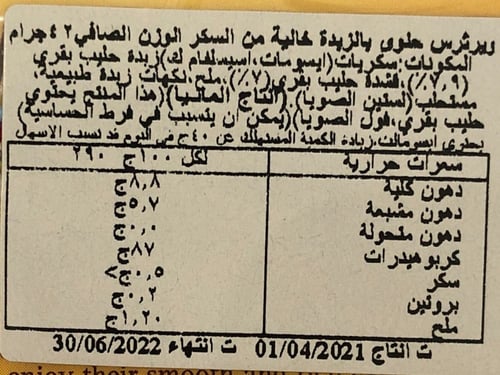 ويرثرس حلوى بالزبدة خالية من السكر الوزن الصافي ٤٢ جرام
المكونات:سكريات(ايسومات،اسيسلفام ك)زبدة حليب بقري
(٧,٩٪)،قشدة حليب بقري(٧٪)،ملح،نكهات زبدة طبيعية،
مستحلب(لستين الصويا).(انتاج المانيا)(هذا المنتج يحتوي
حليب بقري،فول الصويا)(يمكن ان يتسبب في فرط الحساسية)
يحتوي ايسومالت،زيادة الكمية المستهلك عن ٤٠ج في اليوم قد تسبب الاسهال
سعرات حرارية لكل ١٠٠ج ٢٩٠
دهون كلية ٨,٨ج
دهون مشبعة ٥,٧ج
دهون متحولة ٠,٠ج
كربوهيدرات ٨٧ج
سكر ٠,٥ج>
بروتين ٠,٢ج
ملح ١,٢٠ج
ت انتاج 01/04/2021 ت انتهاء 30/06/2022
enjoy their smooth and